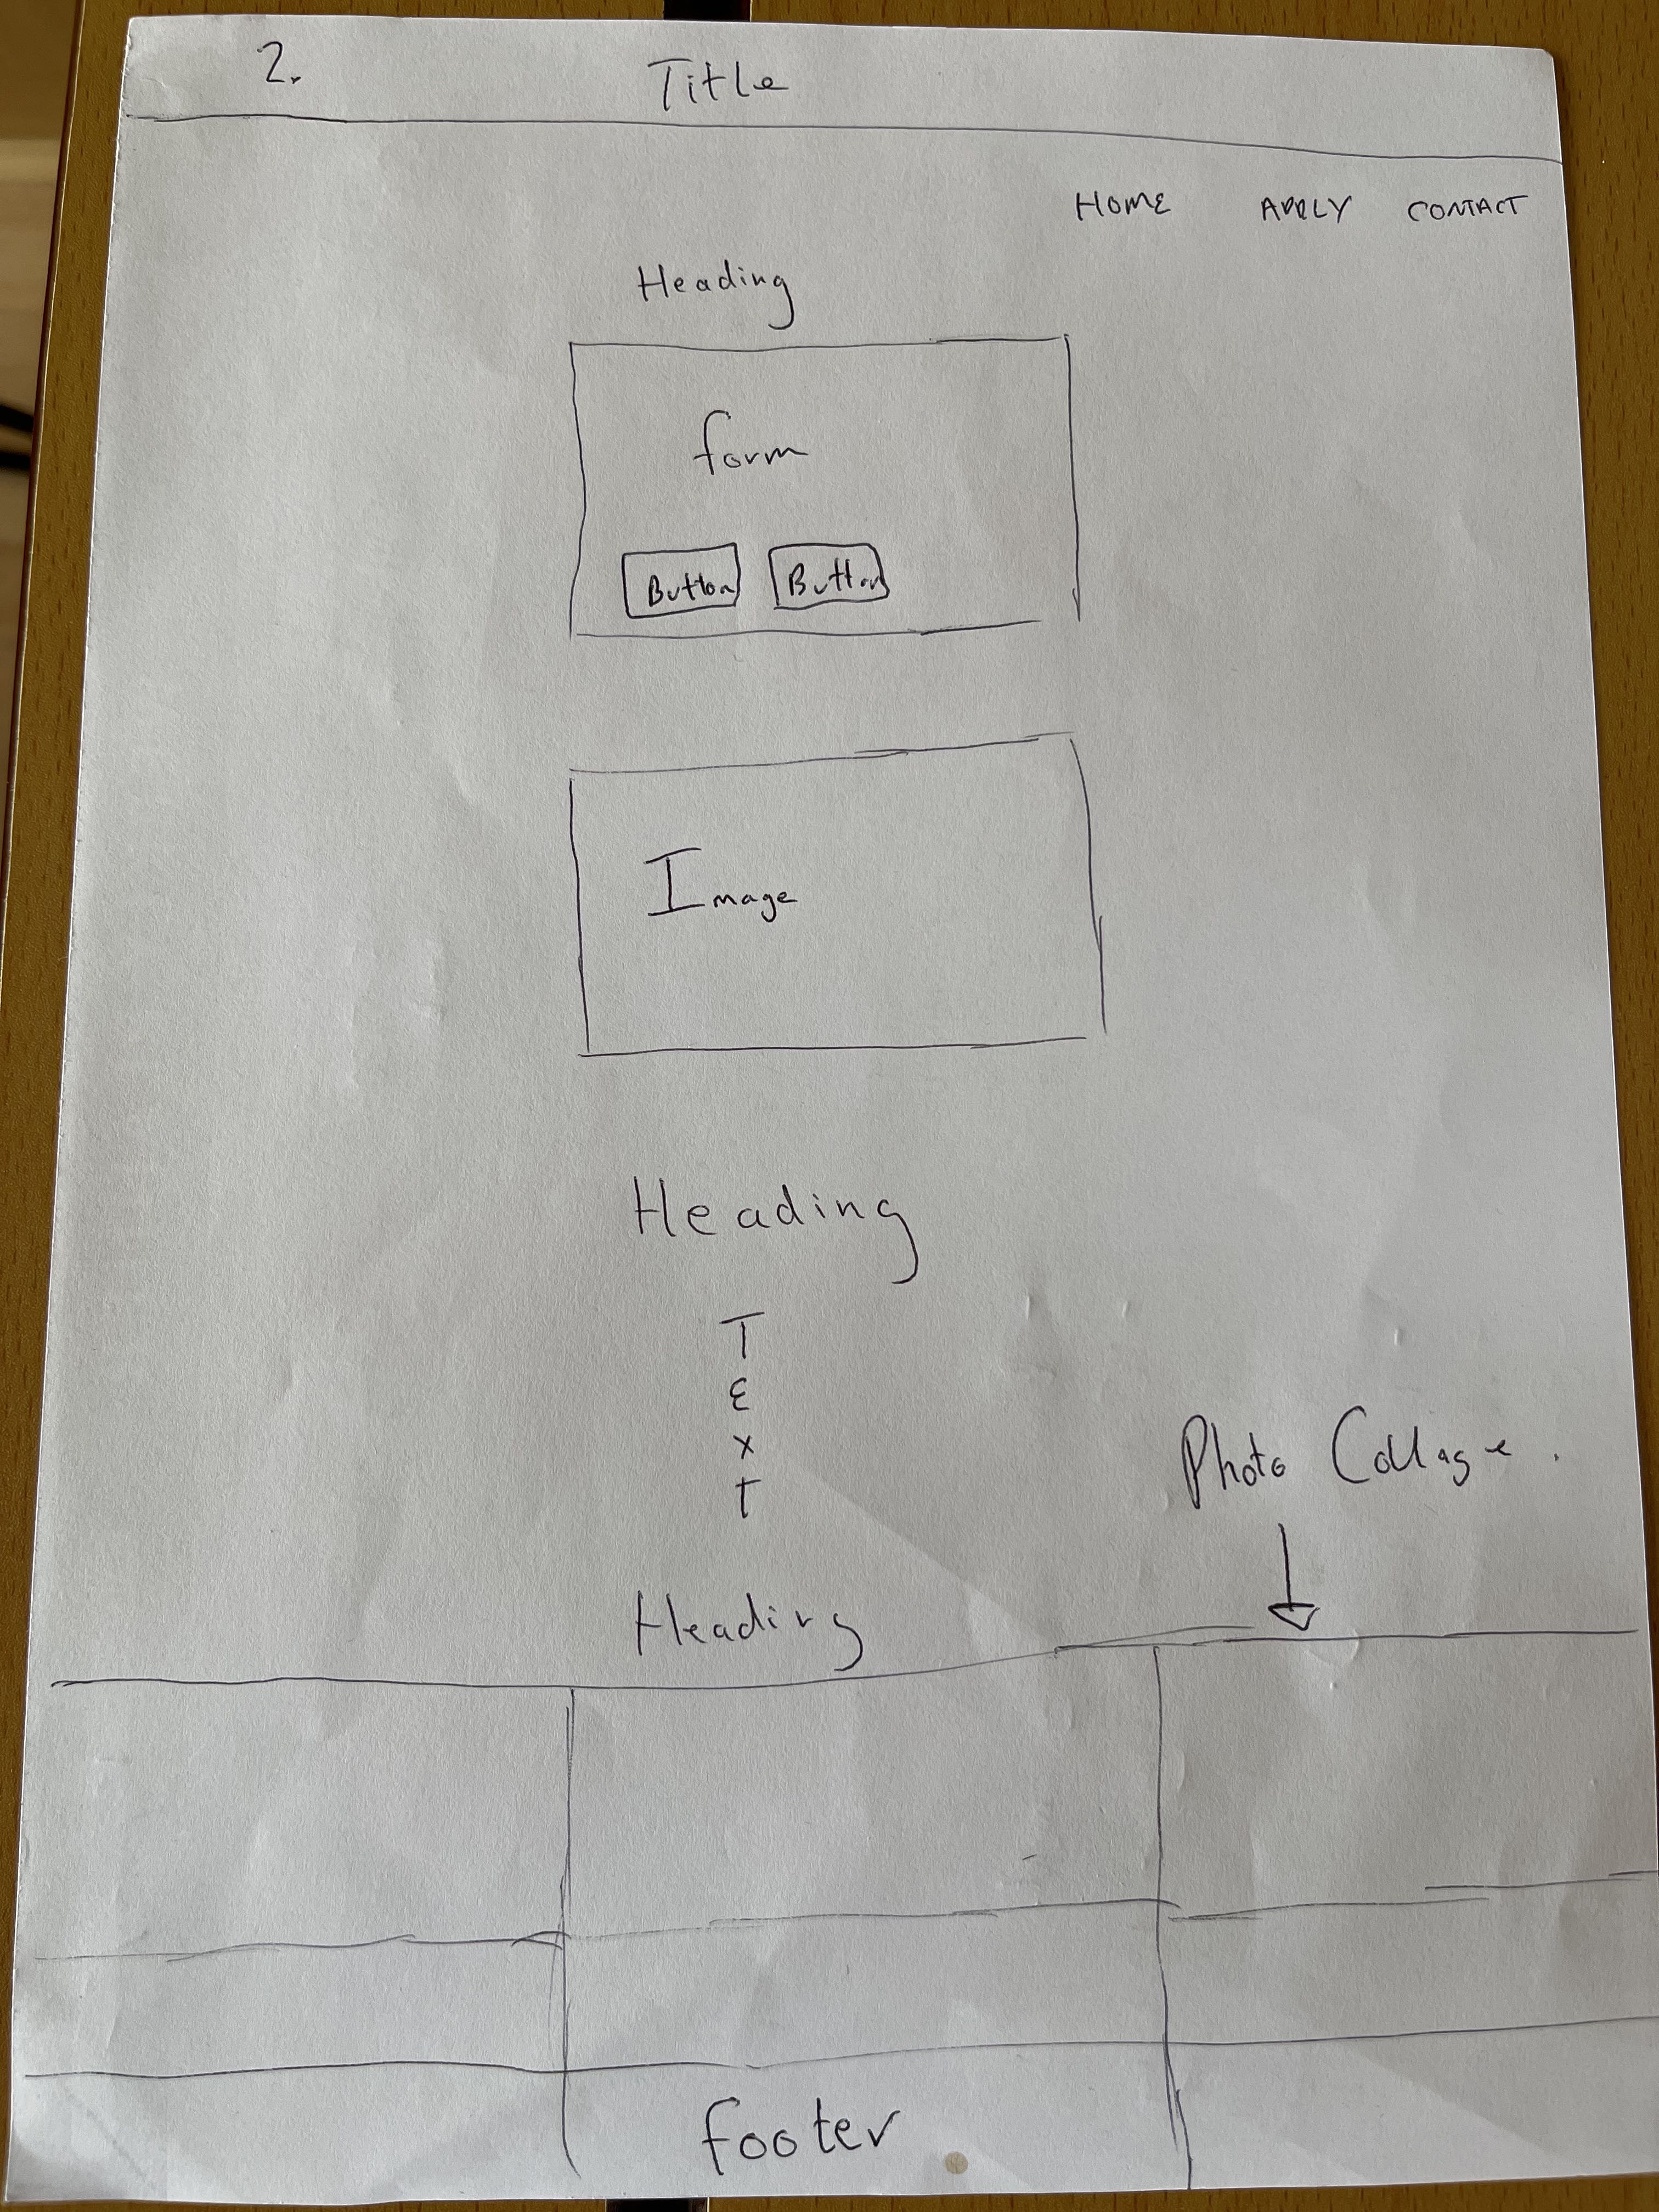 2. Title
HOME APPLY CONTACT
Heading
form
Button Button
Image
Heading
T
E
X
T
Photo Collage.
Heading
footer